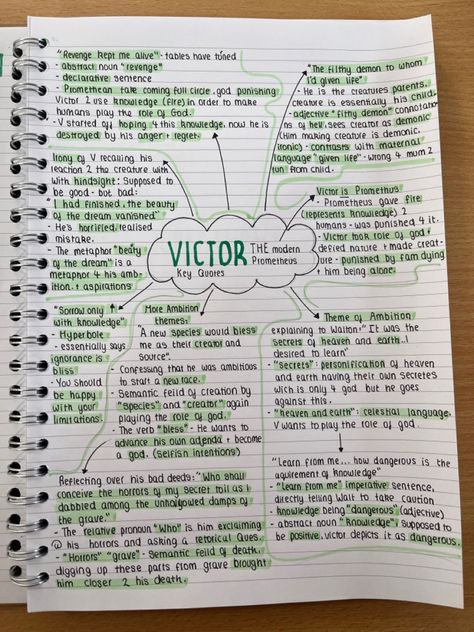 "Revenge kept me alive" - tables have tuned
- abstract noun "revenge"
- declarative sentence
- Promethean take coming full circle. god punishing
Victor 2 use knowledge (fire) in order to make
humans play the role of God.
- V started of hoping 4 this knowledge. now he is
destroyed by his anger + regret.
"The filthy demon to whom
I'd given life"
- He is the creatures parents,
creature is essentially his child.
- adjective "filthy demon" connotation
ns of hell. sees creator as demonic
(Him making creature is demonic.
ironic) - contrasts with maternal
language "given life" - wrong 4 mum 2
run from child.
Irony of V recalling his
reaction 2 the creature with
with hindsight: Supposed to
be good - but bad:
"I had finished, the beauty
of the dream vanished"
- He's horrified/realised
mistake.
- The metaphor "beaty
of the dream" is a
metaphor 4 his amb-
ition + aspirations
Victor is Promethus
- Prometheus gave fire
(represents knowledge) 2
humans - was punished 4 it.
- Victor took role of god +
defied nature + made creat-
ure - punished by fam dying
+ him being alone.
VICTOR THE modern
Prometheus
Key Quotes
"Sorrow only
with knowledge"
- Hyperbole
- essentially says
ignorance is
bliss
- You should
be happy
with your
limitations.
More Ambition
themes:
"A new species would bless
me as their creator and
source".
- Confessing that he was ambitious
to start a new race.
- Semantic feild of creation by
"species" and "creator" again
playing the role of god.
- The verb "bless" - He wants to
advance his own adgenda + become
a god. (Selfish intentions)
Theme of Ambition
explaining to Walton: "It was the
secrets of heaven and earth..I
desired to learn"
- "secrets": personification of heaven
and earth having their own secretes
wich is only 4 god but he goes
against this.
- "heaven and earth": celestial language.
V wants to play the role of god.
Reflecting over his bad deeds: "Who shall
conceive the horrors of my secret toil as I
dabbled among the unhallowed damps of
the grave."
- The relative pronoun "Who" is him exclaiming
@ his horrors and asking a retorical Ques.
- "Horrors" "grave" - Semantic feild of death.
digging up these parts from grave brought
him closer 2 his death.
"Learn from me... how dangerous is the
aquirement of knowledge"
- "Learn from me" imperative sentence,
directly telling Walt to take caution
- knowledge being "dangerous" (adjective)
- abstract noun "knowledge", supposed to
be positive. victor depicts it as dangerous.